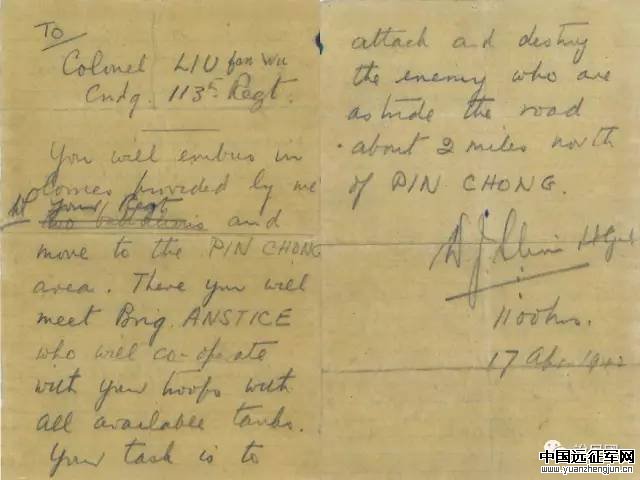 To
Colonel LIU fan Wu
Cmdg. 113th Regt.
You will embus in
lorries provided by me
your Regt
two battalions and
move to the PIN CHONG
area. There you will
meet Brig. ANSTICE
who will co-operate
with your troops with
all available tanks.
Your task is to
attack and destroy
the enemy who are
astride the road
about 2 miles north
of PIN CHONG.
W J Slim Lt Gen
1100 hrs.
17 Apr 1942
中国远征军网
www.yuanzhengjun.cn